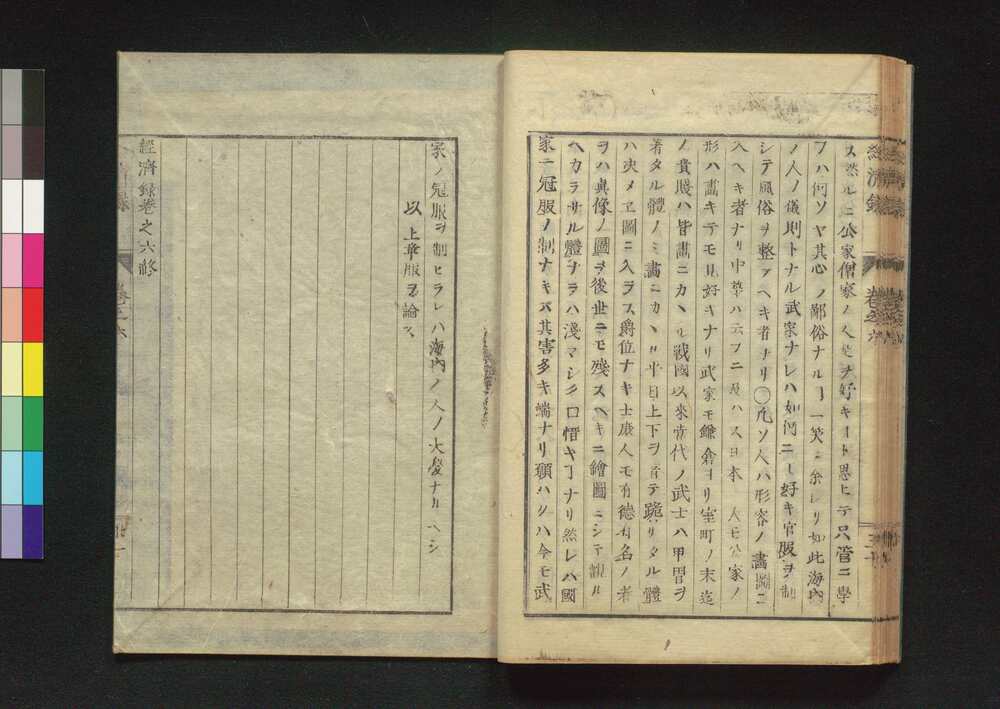 ス然ルニ公家僧家ノ人是ヲ好キヿト思ヒテ只管ニ學
フハ何ソヤ其心ノ鄙俗ナルヿ一笑ニ余レリ如此海内
ノ人ノ儀則トナル武家ナレハ如何ニモ好キ官服ヲ制
シテ風俗ヲ整フヘキ者ナリ〇凢ソ人ハ形容ノ畫圖ニ
入ヘキ者ナリ中華ハ云フニ及ハス日本ノ人モ公家ノ
形ハ畫キテモ見好キナリ武家モ鎌倉ヨリ室町ノ末迄
ノ貴賤ハ皆畫ニカヽル戦國以來當代ノ武士ハ甲冑ヲ
著タル體ノミ畫ニカヽル平日上下ヲ着テ跪リタル體
ハ决メヱ圖ニ入ラス爵位ナキ士庶人モ有德有名ノ者
ヲハ真像ノ圖ヲ後世ニモ殘スヘキニ繪圖ニシテ観ル
ヘカラサル體ナラハ淺マシク口惜キヿナリ然レハ國
家ニ冠服ノ制ナキハ其害多キ端ナリ願ハクハ今モ武
家ノ冠服ヲ制ヒラレハ海内ノ人ノ大慶ナルヘシ
以上章服ヲ論ス
經濟録巻之六終
經濟録
巻之六
三十